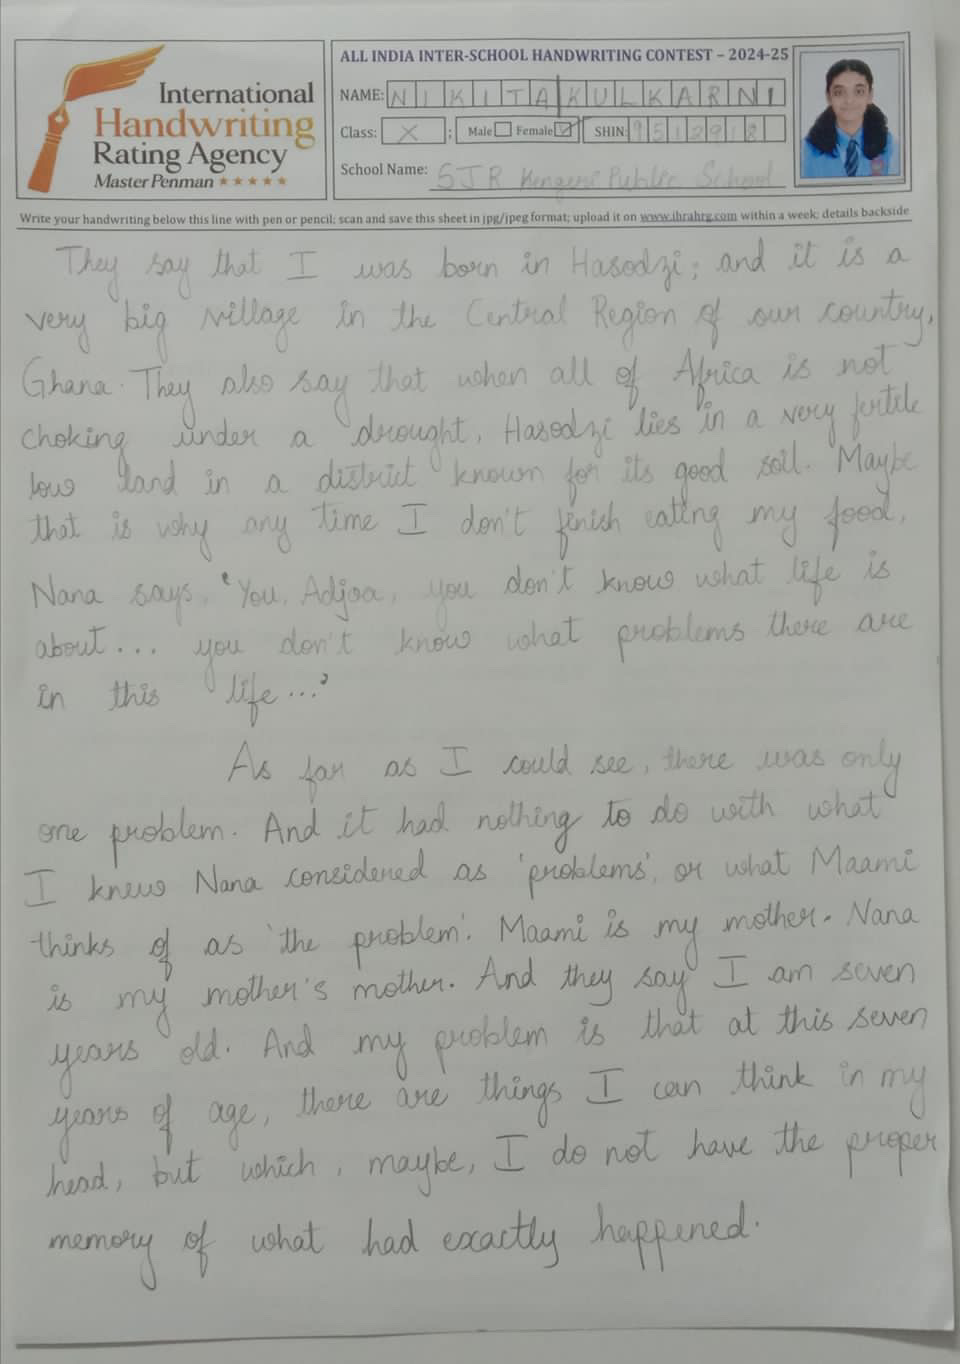 International
Handwriting
Rating Agency
Master Penman ★★★★★
ALL INDIA INTER-SCHOOL HANDWRITING CONTEST – 2024-25
NAME: NIKITA KULKARNI
Class: X ; Male Female ✓ SHIN: 9512918
School Name: SJR Kengeri Public School
Write your handwriting below this line with pen or pencil; scan and save this sheet in jpg/jpeg format; upload it on www.ihrahrg.com within a week; details backside
They say that I was born in Hasodzi; and it is a
very big village in the Central Region of our country,
Ghana. They also say that when all of Africa is not
choking under a drought, Hasodzi lies in a very fertile
low land in a district known for its good soil. Maybe
that is why any time I don't finish eating my food,
Nana says, 'You, Adjoa, you don't know what life is
about... you don't know what problems there are
in this life...'
As far as I could see, there was only
one problem. And it had nothing to do with what
I knew Nana considered as 'problems', or what Maami
thinks of as 'the problem'. Maami is my mother. Nana
is my mother's mother. And they say I am seven
years old. And my problem is that at this seven
years of age, there are things I can think in my
head, but which, maybe, I do not have the proper
memory of what had exactly happened.